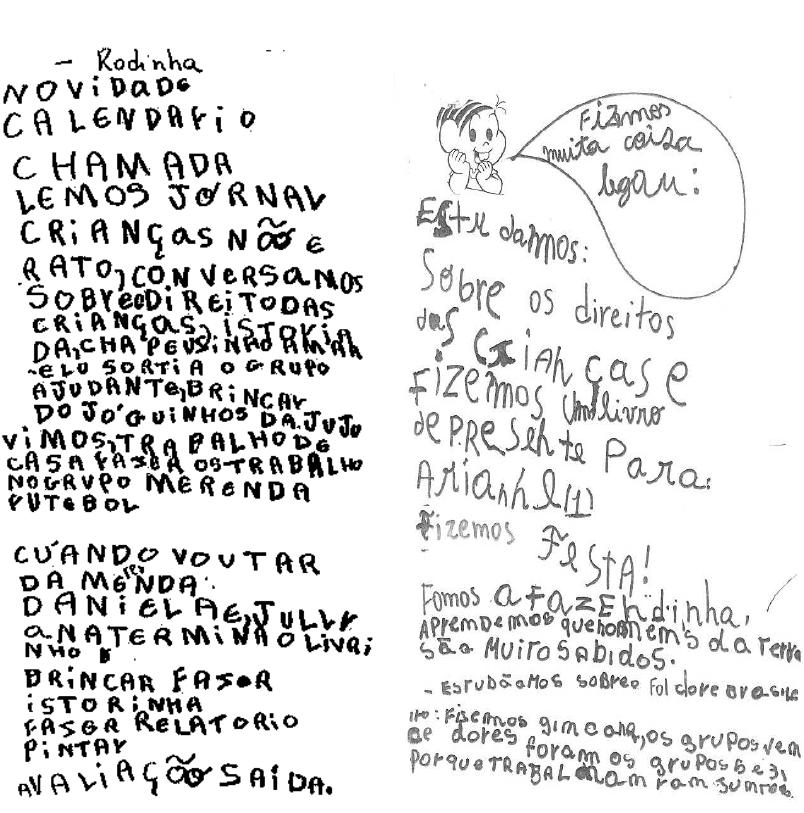 - Rodinha
NOViDaDe
CALENDARiO
CHAMADA
LEMOS JORNAL
CRiANÇAS NÃO E
RATO, CONVERSAMOS
SOBRE O DiREITO DAS
CRIANÇAS, ISTORIA
DA, CHAPEUSINHO AMAR
ELO SORTIA O GRUPO
AJUDANTE, BRiNCAR
DO JOGUINHOS DA JUJU
ViMOS, TRABALHO DE
CASA FASER OS TRABALHO
NO GRUPO MERENDA
FUTEBOL
CUANDO VOUTAR
DA MENDA
DANiELA E, JULLY
ANA TERMINA O LiVRi
NHO
BRiNCAR FASER
iSTORiNHA
FASER RELATORIO
PiNTAR
AVALiAÇÃO SAÍDA.
Fizemos
muita coisa
legau:
Estudamos:
Sobre os direitos
das Crianças e
Fizemos um livro
de PResente Para:
ARianhe(1)
Fizemos FeSTA!
Fomos a FaZENdinha,
APRENDEMOS que homem's da terra
são MUiTO SABiDOS.
- ESTUDÃAMOS SOBRE o Folclore brasile
iro: Fisemos gimcana, os grupos vem
ce dores foram os grupos 5 e 3,
PORQUE TRABALHAM ram juntos.